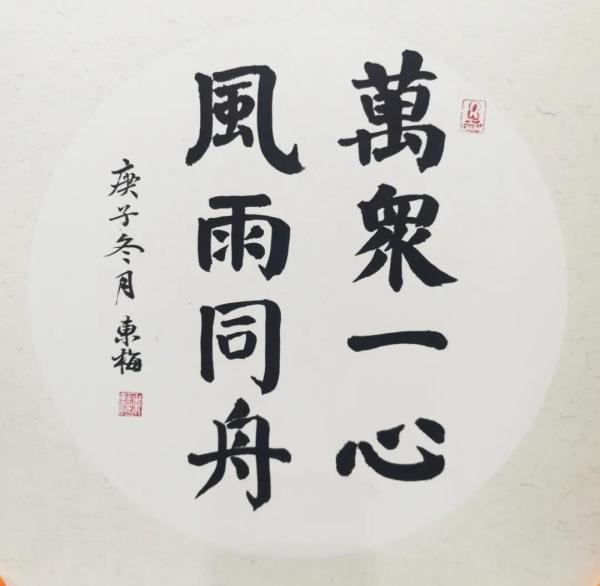 萬衆一心
風雨同舟
庚子冬月東梅